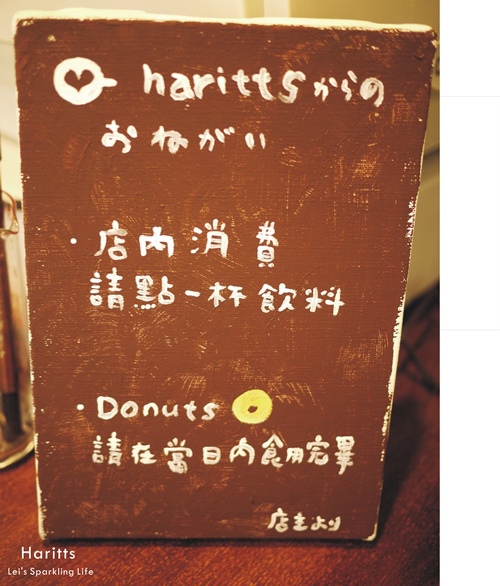 harittsからの
おねがい
・店内消費
請點一杯飲料
・Donuts
請在當日內食用完畢
店主より
Haritts
Lei's Sparkling Life